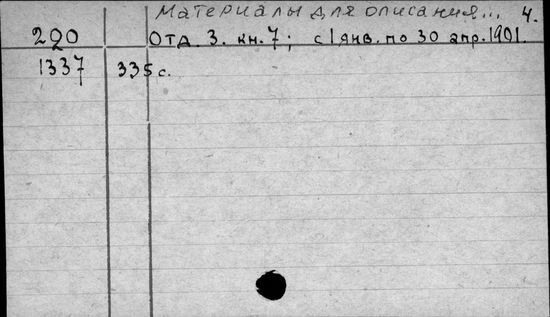 Материалы для описания... 4.
290 Отд. 3. кн. 7; с 1 янв. по 30 апр. 1901.
1337 335 с.